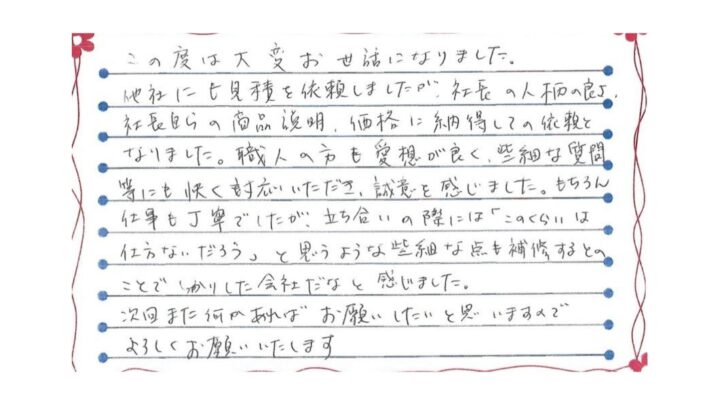 この度は大変お世話になりました。
他社にも見積を依頼しましたが、社長の人柄の良さ、
社長自らの商品説明、価格に納得しての依頼と
なりました。職人の方も愛想が良く、些細な質問
等にも快く対応いただき、誠意を感じました。もちろん
仕事も丁寧でしたが、立ち合いの際には「このくらいは
仕方ないだろう」と思うような些細な点も補修するとの
ことでしっかりした会社だなと感じました。
次回また何かあればお願いしたいと思いますので
よろしくお願いいたします